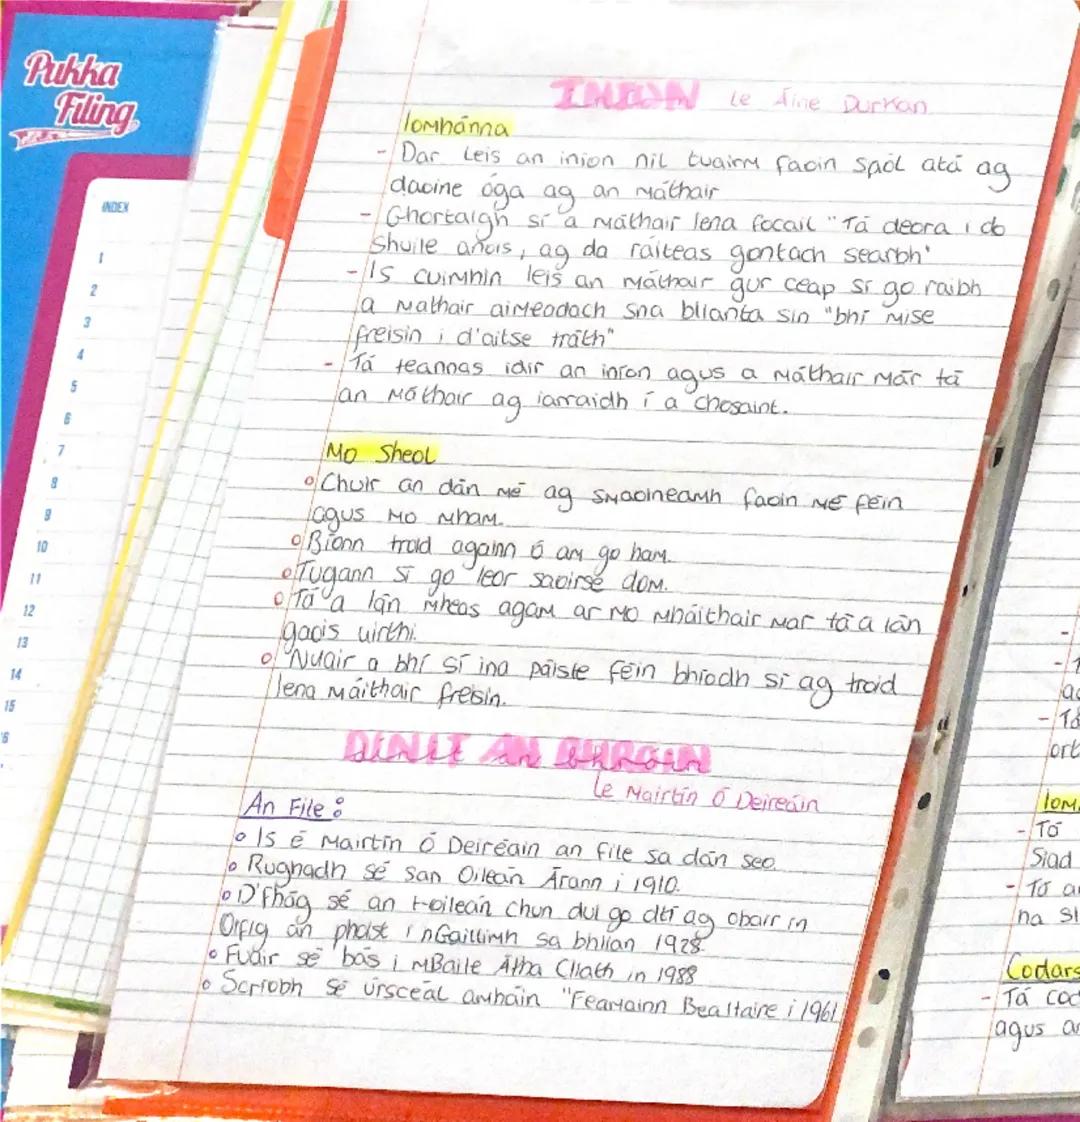 Pukka
Filing
INDEX
1
2
3
4
5
6
7
8
9
10
11
12
13
14
15
INION le Áine Durkan
Íomhánna
- Dar leis an inion nil tuairm faoin spól atá ag
daoine óga ag an máthair
- Ghortaigh sí a máthair lena focail "Tá deora i do
shuile anois, ag da ráiteas gontach searbh'
- Is cuimhin leis an máthair gur ceap sí go raibh
a mathair aimeadach sna blianta sin "bhí mise
freisin i d'aitse tráth"
- Tá teannas idir an inion agus a máthair mar tá
an máthair ag iarraidh í a chosaint.
Mo Sheol
Chuir an dán mé ag smaoineamh faoin mé féin
agus mo mham.
Bíonn troid againn ó am go ham.
Tugann sí go leor saoirse dom.
Tá a lán mheas agam ar mo mháithair mar tá a lán
gaois uirthi.
Nuair a bhí sí ina páiste féin bhíodh sí ag troid
lena máithair freisin.
AN BHRÓIN
le Mairtín Ó Deireáin
An File:
Is é Mairtín Ó Deireáin an file sa dán seo.
Rughadh sé san Oileán Árann i 1910.
D'fhág sé an t-oileán chun dul go dtí ag obair in
Oifig an phoist i nGaillimh sa bhlian 1928.
Fuair sé bás i mBaile Átha Cliath in 1988
Scríobh sé úrscéal amháin "Fearmainn Bealtaire i 1961
- Tá
ort
Íom
- Tá
Siad
- Tá a
na sl
Codars
- Tá cod
agus a